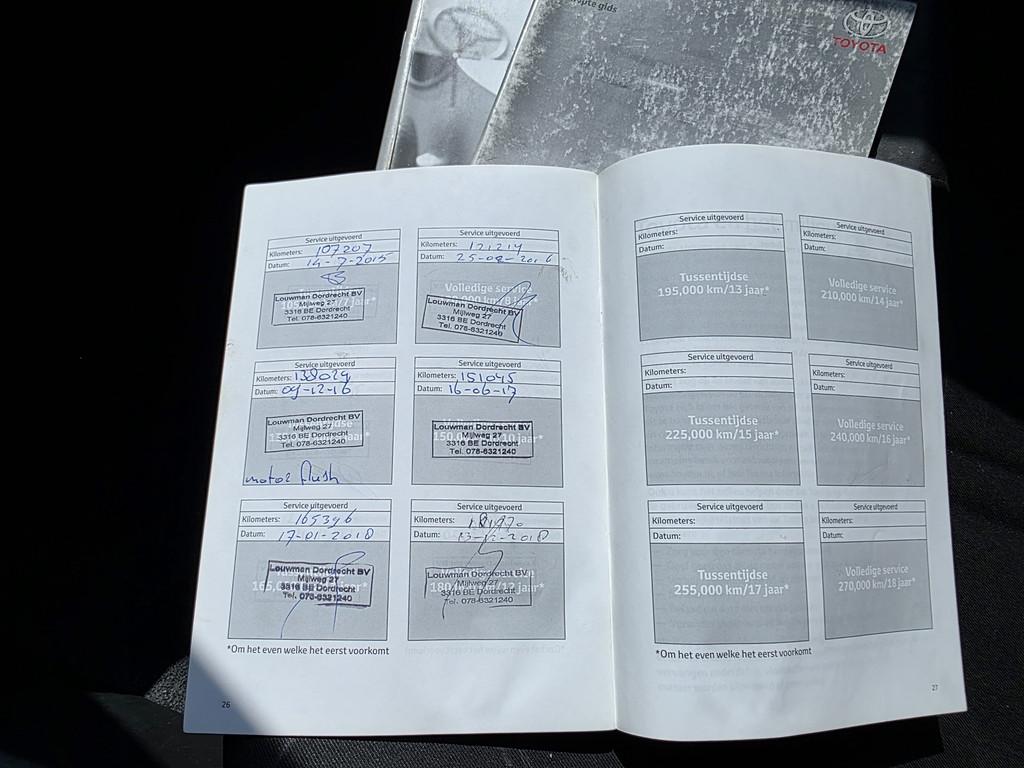 TOYOTA
Service uitgevoerd
Kilometers: 107207
Datum: 14-7-2015
Louwman Dordrecht BV
Mijlweg 27
3316 BE Dordrecht
Tel. 078-6321240
Service uitgevoerd
Kilometers: 121214
Datum: 25-02-2016
Volledige service
Louwman Dordrecht BV
Mijlweg 27
3316 BE Dordrecht
Tel. 078-6321240
Service uitgevoerd
Kilometers: 138029
Datum: 09-12-16
Louwman Dordrecht BV
Mijlweg 27
3316 BE Dordrecht
Tel. 078-6321240
motor flush
Service uitgevoerd
Kilometers: 151045
Datum: 16-06-17
Louwman Dordrecht BV
Mijlweg 27
3316 BE Dordrecht
Tel. 078-6321240
Service uitgevoerd
Kilometers: 165396
Datum: 17-01-2018
Louwman Dordrecht BV
Mijlweg 27
3316 BE Dordrecht
Tel. 078-6321240
Service uitgevoerd
Kilometers:
Datum: 13-12-2018
Louwman Dordrecht BV
Mijlweg 27
3316 BE Dordrecht
Tel. 078-6321240
*Om het even welke het eerst voorkomt
26
Service uitgevoerd
Kilometers:
Datum:
Tussentijdse
195,000 km/13 jaar*
Service uitgevoerd
Kilometers:
Datum:
Volledige service
210,000 km/14 jaar*
Service uitgevoerd
Kilometers:
Datum:
Tussentijdse
225,000 km/15 jaar*
Service uitgevoerd
Kilometers:
Datum:
Volledige service
240,000 km/16 jaar*
Service uitgevoerd
Kilometers:
Datum:
Tussentijdse
255,000 km/17 jaar*
Service uitgevoerd
Kilometers:
Datum:
Volledige service
270,000 km/18 jaar*
*Om het even welke het eerst voorkomt
27